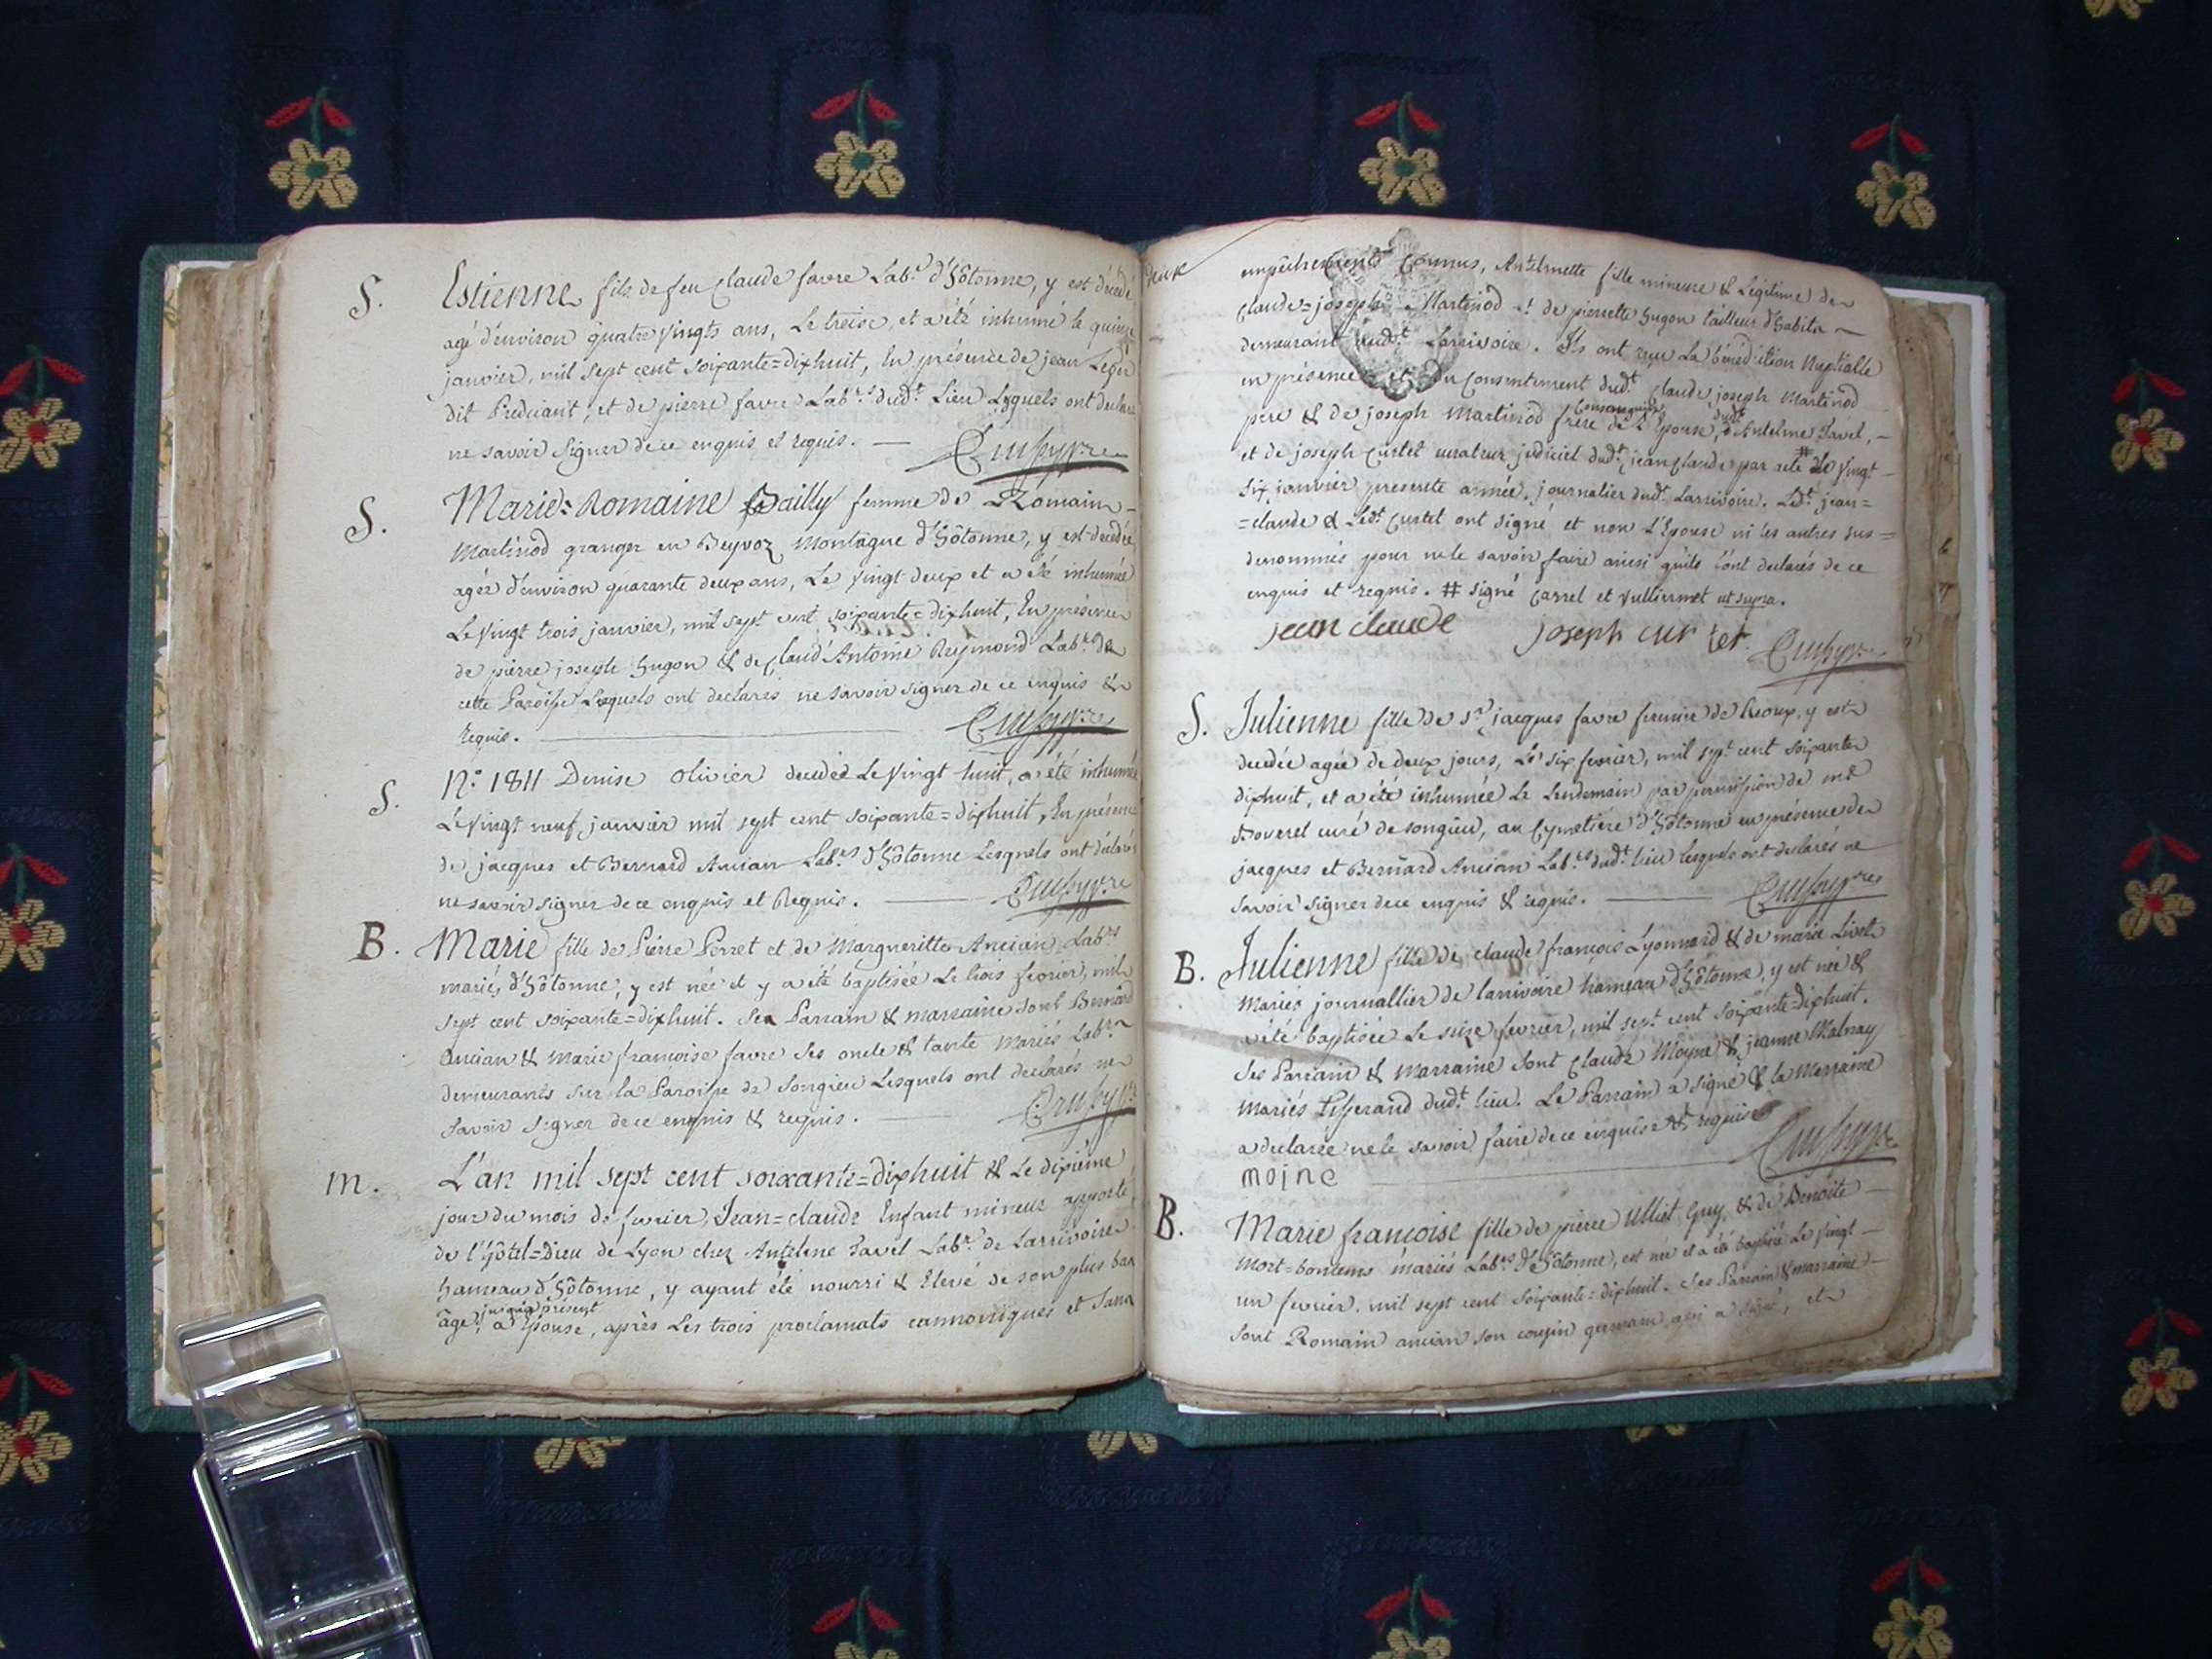 S. Estienne fils de feu Claude favre Lab.r d'hôtonne, y est décédé
agé d'environ quatre vingts ans, Le treise, et a été inhumé le quinze
janvier, mil sept cent soixante=dixhuit, En présence de jean
dit et de pierre favre Lab.rs dud.t Lieu Lesquels ont declaré
ne savoir signer de ce enquis et requis.
S. Marie=Romaine Bailly femme de Romain
Martinod granger en Beyvoz Montagne d'hôtonne, y est decedée
agée d'environ quarante deux ans, Le vingt deux et a été inhumée
Le vingt trois janvier, mil sept cent soixante=dixhuit, En présence
de pierre joseph hugon & de claud'Antoine Reymond Lab.rs de
cette Paroisse Lesquels ont declarés ne savoir signer de ce enquis &
requis.
S. N.° 1811 Denise Olivier decedée Le vingt huit, a été inhumée
Le vingt neuf janvier mil sept cent soixante=dixhuit, En présence
de jacques et Bernard Ancian Lab.rs d'hôtonne Lesquels ont déclarés
ne savoir signer de ce enquis et Requis.
B. Marie fille de Pierre Perret et de Margueritte Ancian Lab.rs
mariés d'hôtonne, y est née et y a été baptisée Le trois fevrier, mil
sept cent soixante=dixhuit. Ses Parrain & marraine sont Bernard
Ancian & Marie françoise favre ses oncle & tante Mariés Lab.rs
demeurants sur la Paroisse de Songieu Lesquels ont declarés ne
savoir signer de ce enquis & requis.
m. L'an mil sept cent soixante=dixhuit & Le dixième
jour du mois de fevrier, Jean=claude Enfant mineur apporté
de l'hôtel=Dieu de Lyon chez Antelme Javel Lab.r de Larrivoire
hameau d'hôtonne, y ayant été nourri & Elevé de son plus bas
âge, jusqu'a présent a Epousé, après Les trois proclamats cannoniques et sans
empêchements connus, Antelmette fille mineure & Légitime de
claude=joseph Martinod et de pierrette hugon tailleur d'habits
demeurant aud.t Larrivoire. Ils ont reçu La bénédiction Nuptialle
en présence et du consentement dud.t claude joseph Martinod
père & de joseph Martinod frère consanguin de L'Epouse, dud.t Antelme Javel,
et de joseph Curtet curateur judiciel dud.t jean claude par acte # du vingt
six janvier presente année, journalier dud.t Larrivoire. Led.t jean=
=claude & Led.t Curtet ont signé et non L'Epouse ni les autres sus=
denommés pour ne le savoir faire ainsi qu'ils l'ont declarés de ce
enquis et requis. # signé Carrel et Vulliermet ut supra.
jean claude joseph cur tet
S. Julienne fille de S.r jacques favre fermier de y est
decedée agée de deux jours, Le six fevrier, mil sept cent soixante
dixhuit, et a été inhumée Le Lendemain par permission de
curé de songieu, au Cymetière d'hôtonne en présence de
jacques et Bernard Ancian Lab.rs dud.t lieu lesquels ont declarés ne
savoir signer de ce enquis & requis.
B. Julienne fille de claude françois Lyonnard & de marie Livet
Mariés journallier de larrivoire hameau d'hôtonne, y est née &
a été baptisée Le seize fevrier, mil sept cent soixante=dixhuit.
Ses Parrain & Marraine sont Claude Moyne & jeanne
Mariés Tisserand dud.t lieu. Le Parrain a signé & la Marraine
a declarée ne le savoir faire de ce enquise & requise
moine
B. Marie françoise fille de pierre Ulliet Guy, & de Benoite
Mort=bontems mariés Lab.rs d'hôtonne, est née et a été baptisée Le vingt
un fevrier, mil sept cent soixante=dixhuit. Ses Parrain & marraine
sont Romain ancian son cousin germain, qui a signé, et